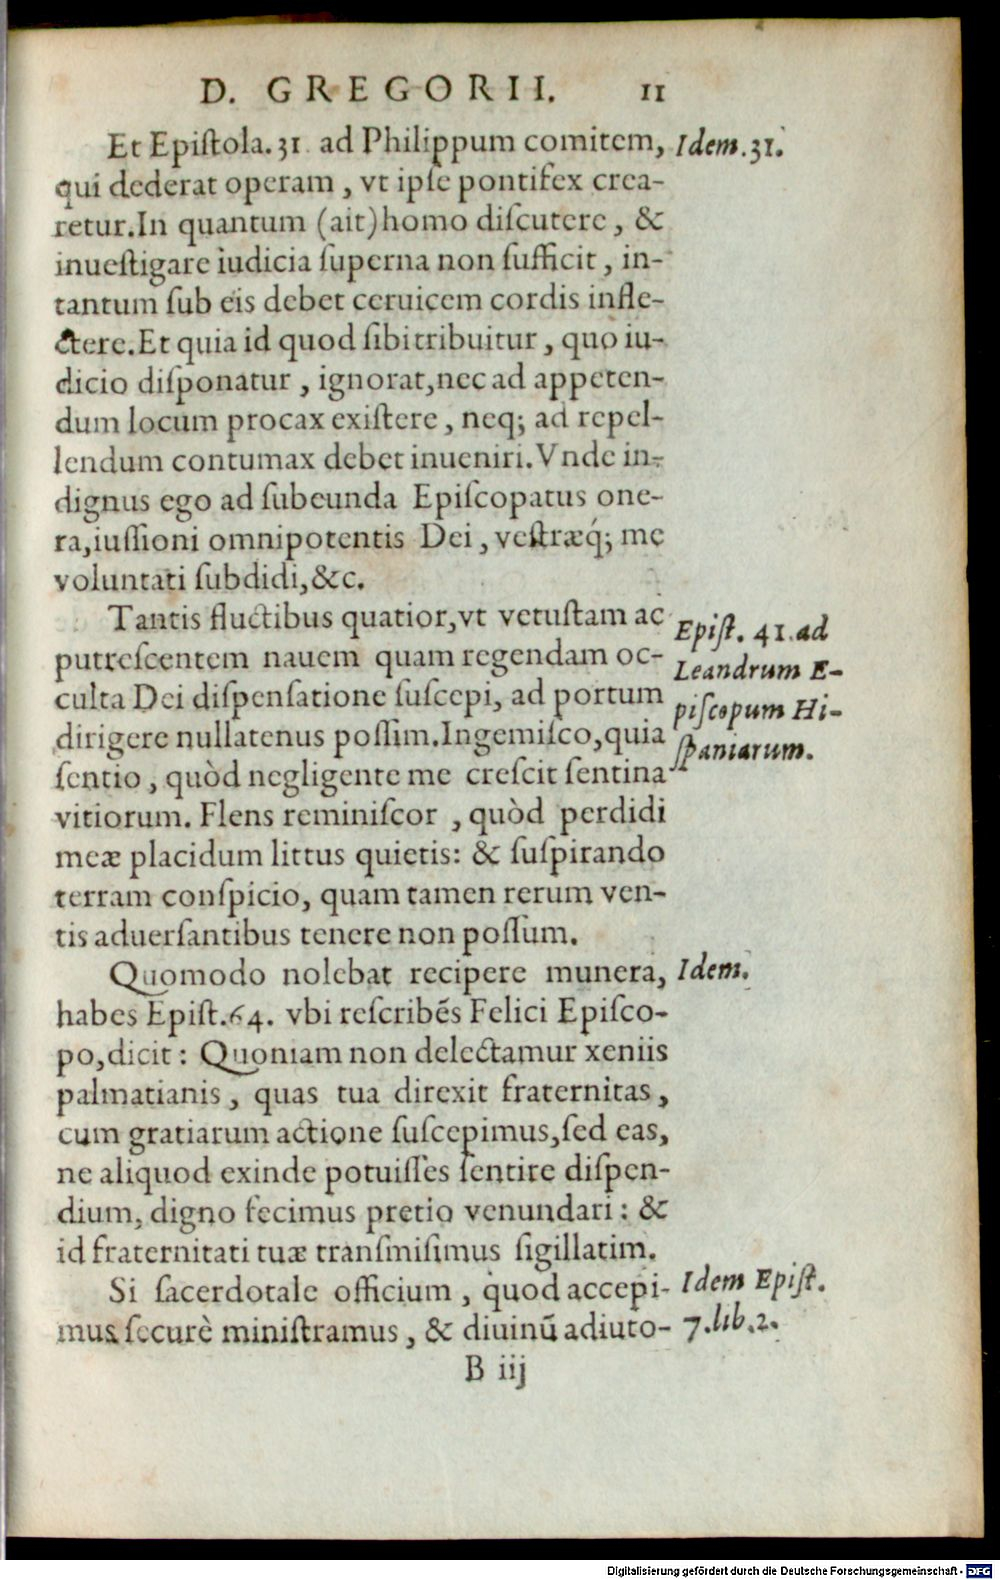 D. GREGORII. 11
Et Epiſtola. 31 ad Philippum comitem, Idem. 31.
qui dederat operam, vt ipſe pontifex crea-
retur. In quantum (ait) homo diſcutere, &
inueſtigare iudicia ſuperna non ſufficit, in-
tantum ſub eis debet ceruicem cordis infle-
ctere. Et quia id quod ſibi tribuitur, quo iu-
dicio diſponatur, ignorat, nec ad appeten-
dum locum procax exiſtere, neq; ad repel-
lendum contumax debet inueniri. Vnde in-
dignus ego ad ſubeunda Epiſcopatus one-
ra, iuſſioni omnipotentis Dei, veſtræq́; me
voluntati ſubdidi, &c.
Tantis fluctibus quatior, vt vetuſtam ac
putreſcentem nauem quam regendam oc-
culta Dei diſpenſatione ſuſcepi, ad portum
dirigere nullatenus poſſim. Ingemiſco, quia
ſentio, quòd negligente me creſcit ſentina
vitiorum. Flens reminiſcor, quòd perdidi
meæ placidum littus quietis: & ſuſpirando
terram conſpicio, quam tamen rerum ven-
tis aduerſantibus tenere non poſſum.
Epiſt. 41. ad
Leandrum E-
piſcopum Hi-
ſpaniarum.
Quomodo nolebat recipere munera, Idem.
habes Epiſt. 64. vbi reſcribẽs Felici Epiſco-
po, dicit: Quoniam non delectamur xeniis
palmatianis, quas tua direxit fraternitas,
cum gratiarum actione ſuſcepimus, ſed eas,
ne aliquod exinde potuiſſes ſentire diſpen-
dium, digno fecimus pretio venundari: &
id fraternitati tuæ tranſmiſimus ſigillatim.
Si ſacerdotale officium, quod accepi-
mus ſecurè miniſtramus, & diuinũ adiuto-
Idem Epiſt.
7. lib. 2.
B iij
Digitalisierung gefördert durch die Deutsche Forschungsgemeinschaft - DFG